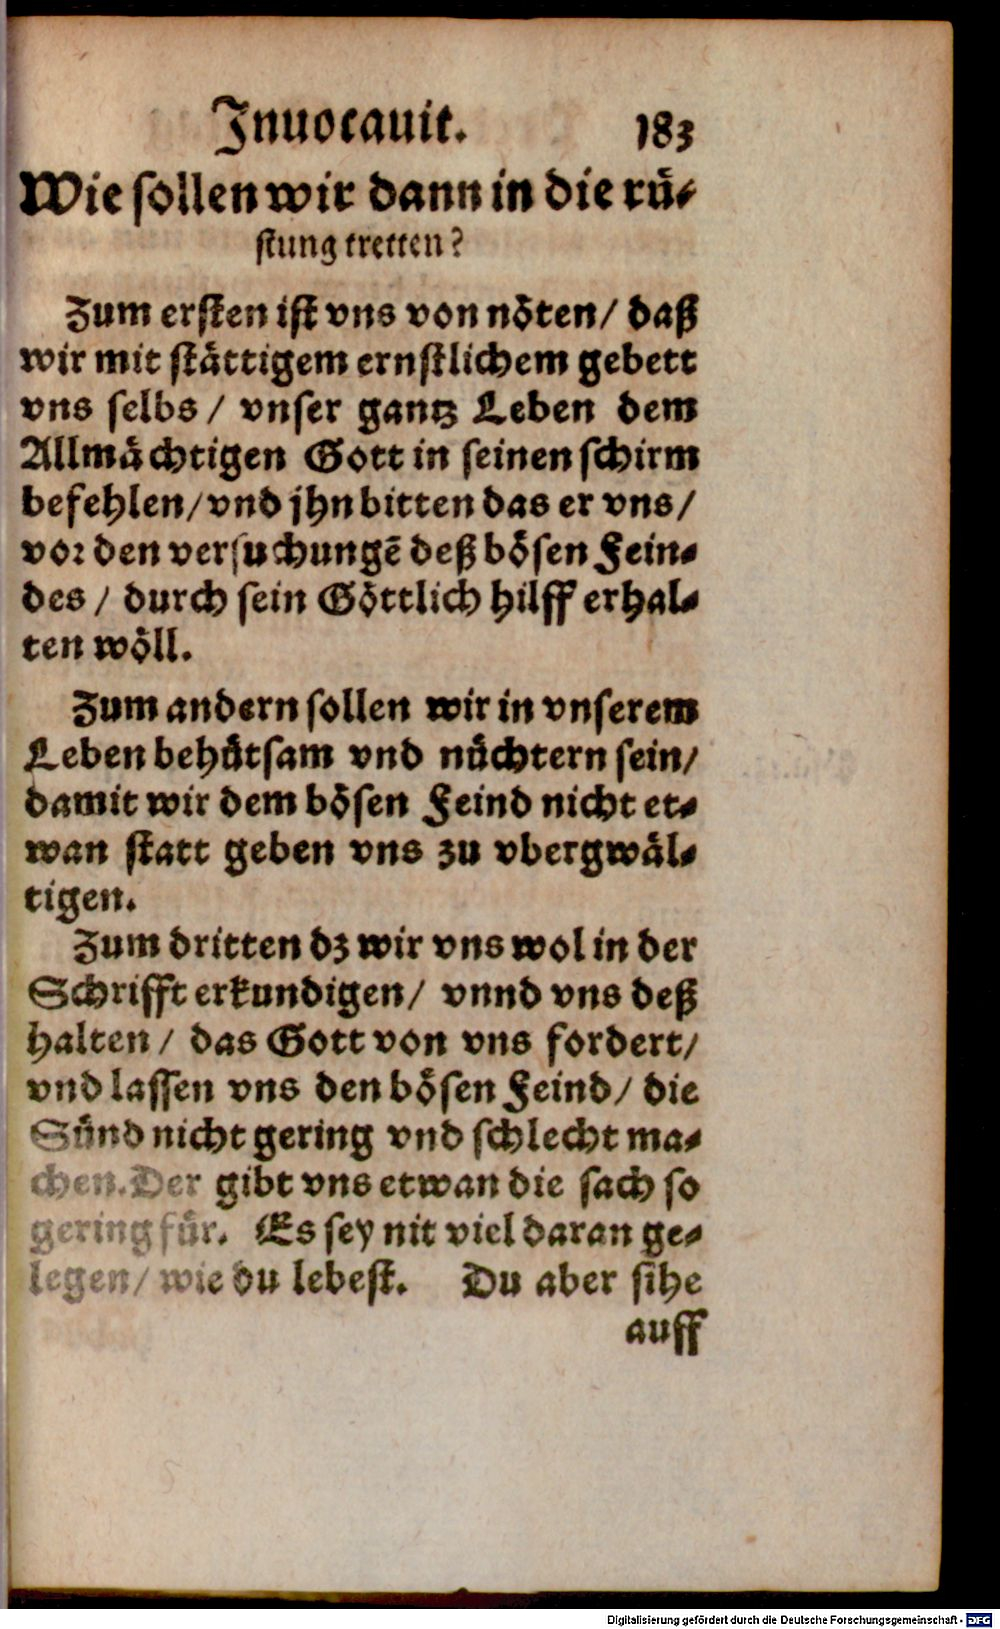 Inuocauit. 183
Wie sollen wir dann in die rü-
stung tretten?
Zum ersten ist vns von nöten/ daß
wir mit stättigem ernstlichem gebett
vns selbs / vnser gantz Leben dem
Allmächtigen Gott in seinen schirm
befehlen/ vnd jhn bitten das er vns/
vor den versuchungē deß bösen Fein-
des / durch sein Göttlich hilff erhal-
ten wöll.
Zum andern sollen wir in vnserem
Leben behütsam vnd nüchtern sein/
damit wir dem bösen Feind nicht et-
wan statt geben vns zu vbergwäl-
tigen.
Zum dritten dz wir vns wol in der
Schrifft erkundigen/ vnnd vns deß
halten / das Gott von vns fordert/
vnd lassen vns den bösen Feind/ die
Sünd nicht gering vnd schlecht ma-
chen. Der gibt vns etwan die sach so
gering für. Es sey nit viel daran ge-
legen/ wie du lebest. Du aber sihe
auff
Digitalisierung gefördert durch die Deutsche Forschungsgemeinschaft - DFG